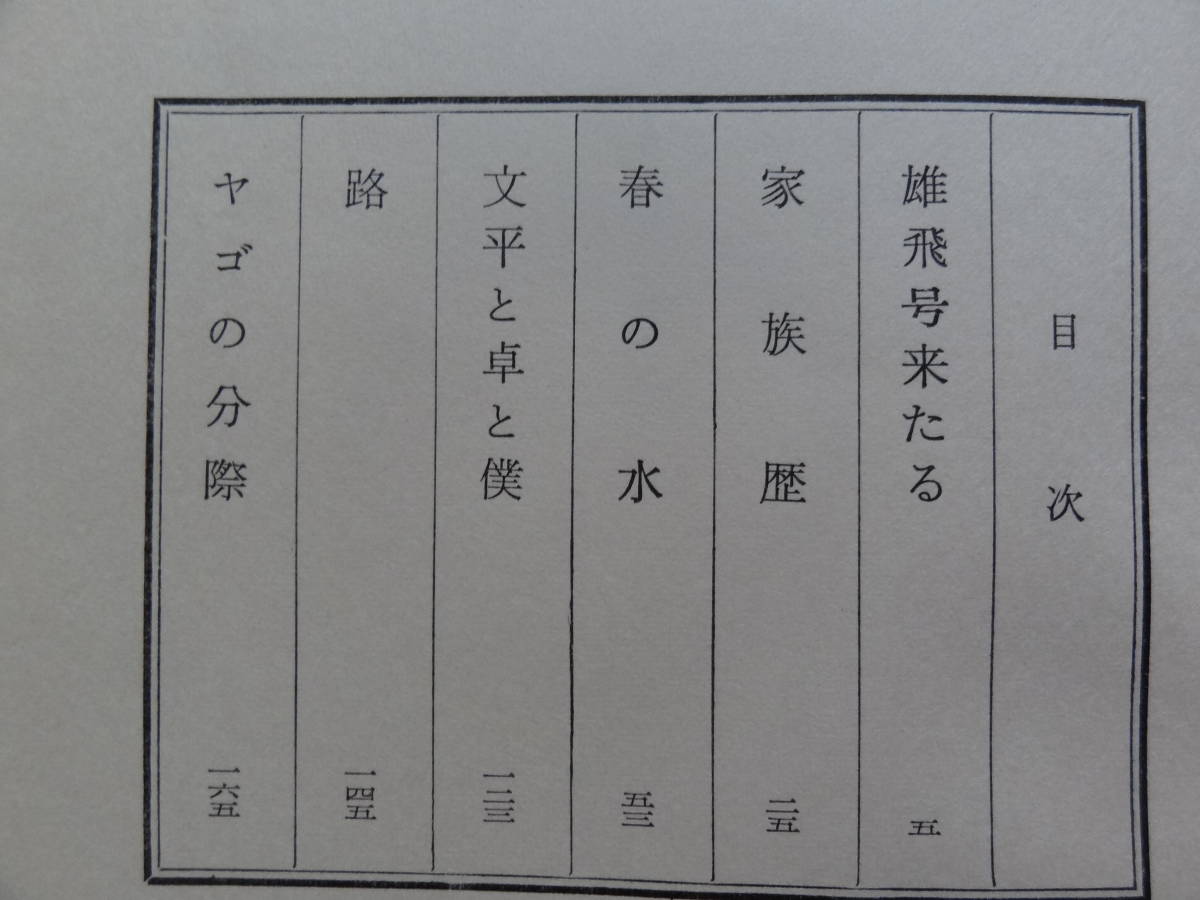 目次
雄飛号来たる 五
家族歴 二五
春の水 五三
文平と卓と僕 一二三
路 一四五
ヤゴの分際 一六五